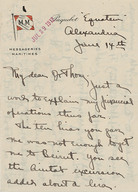 M M
MESSAGERIES
MARITIMES
Paquebot "Equateur"
Alexandria
June 14th
My dear Dr Thom, Just a
word to explain my financial
operations thus far.
The ten liras you gave
me was not enough to get
me to Beirut. You see
the Aintab excursion
added about a lira